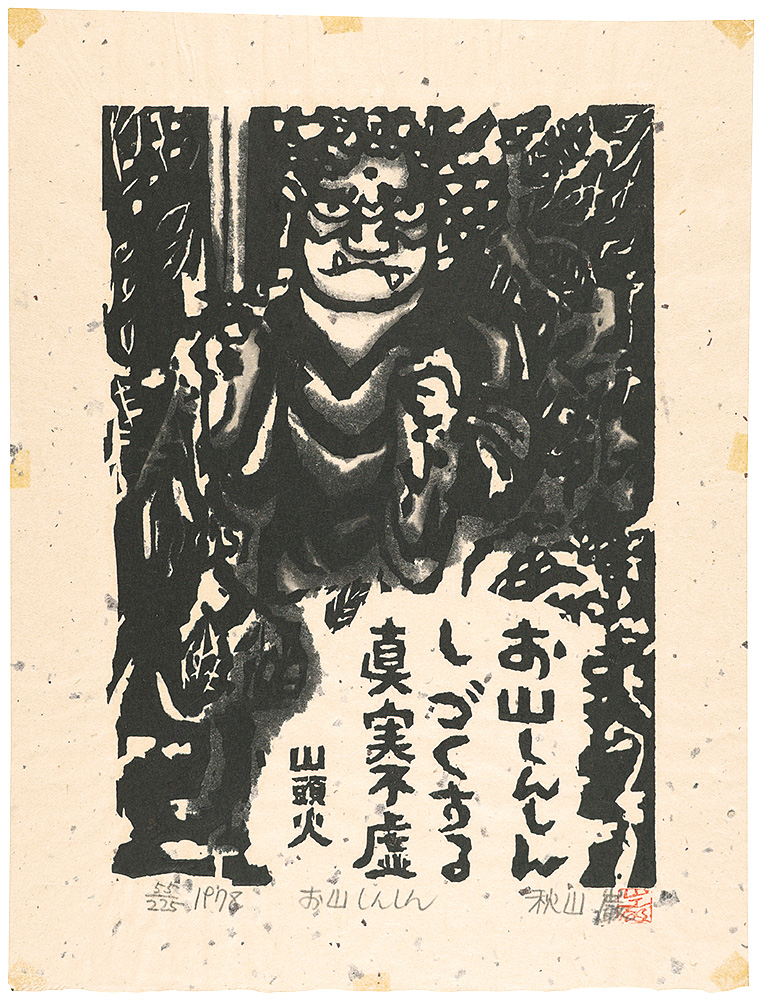 お山しんしん
しづくする
真実不虚
山頭火
55/225 1978 お山しんしん 秋山巌